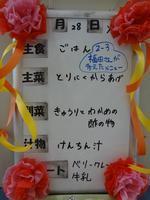 月 28日
主食 ごはん
2-3
福田さんが
考えたメニュー
主菜 とりにくからあげ
副菜 きゅうりとわかめの
酢の物
汁物 けんちん汁
ート ベリークレー
牛乳